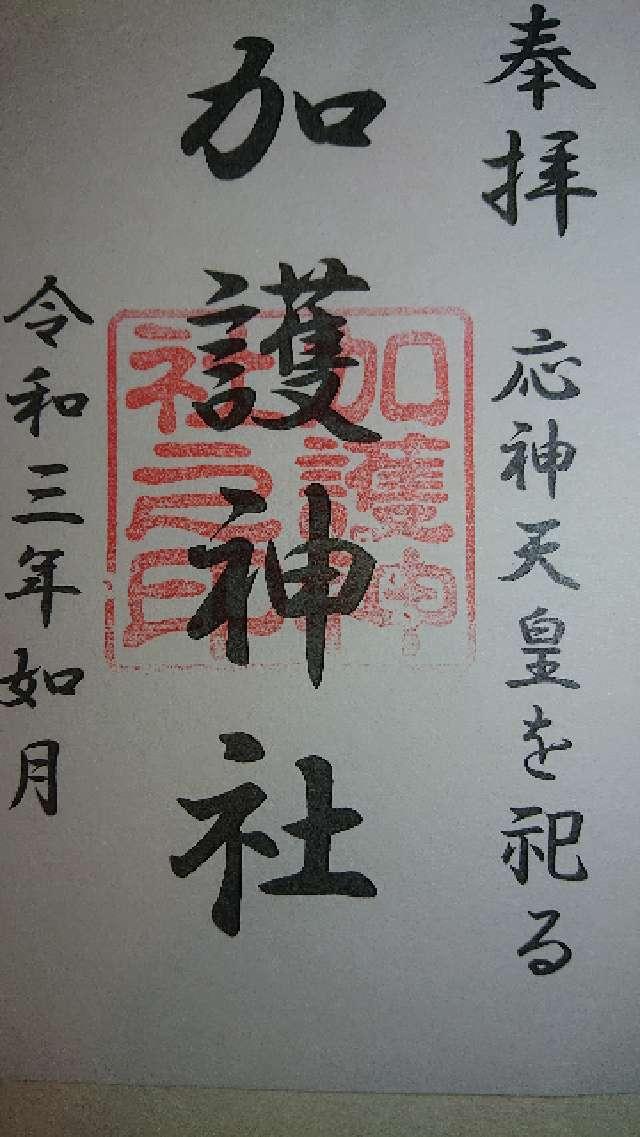 奉拝 応神天皇を祀る
加護神社
加護神
社之印
令和三年如月